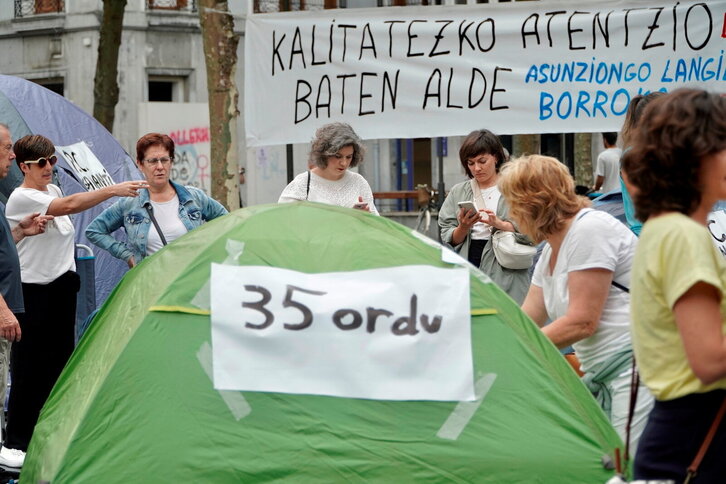 KALITATEZKO ATENTZIO
BATEN ALDE
ASUNZIONGO LANGI
BORROK
35 ordu